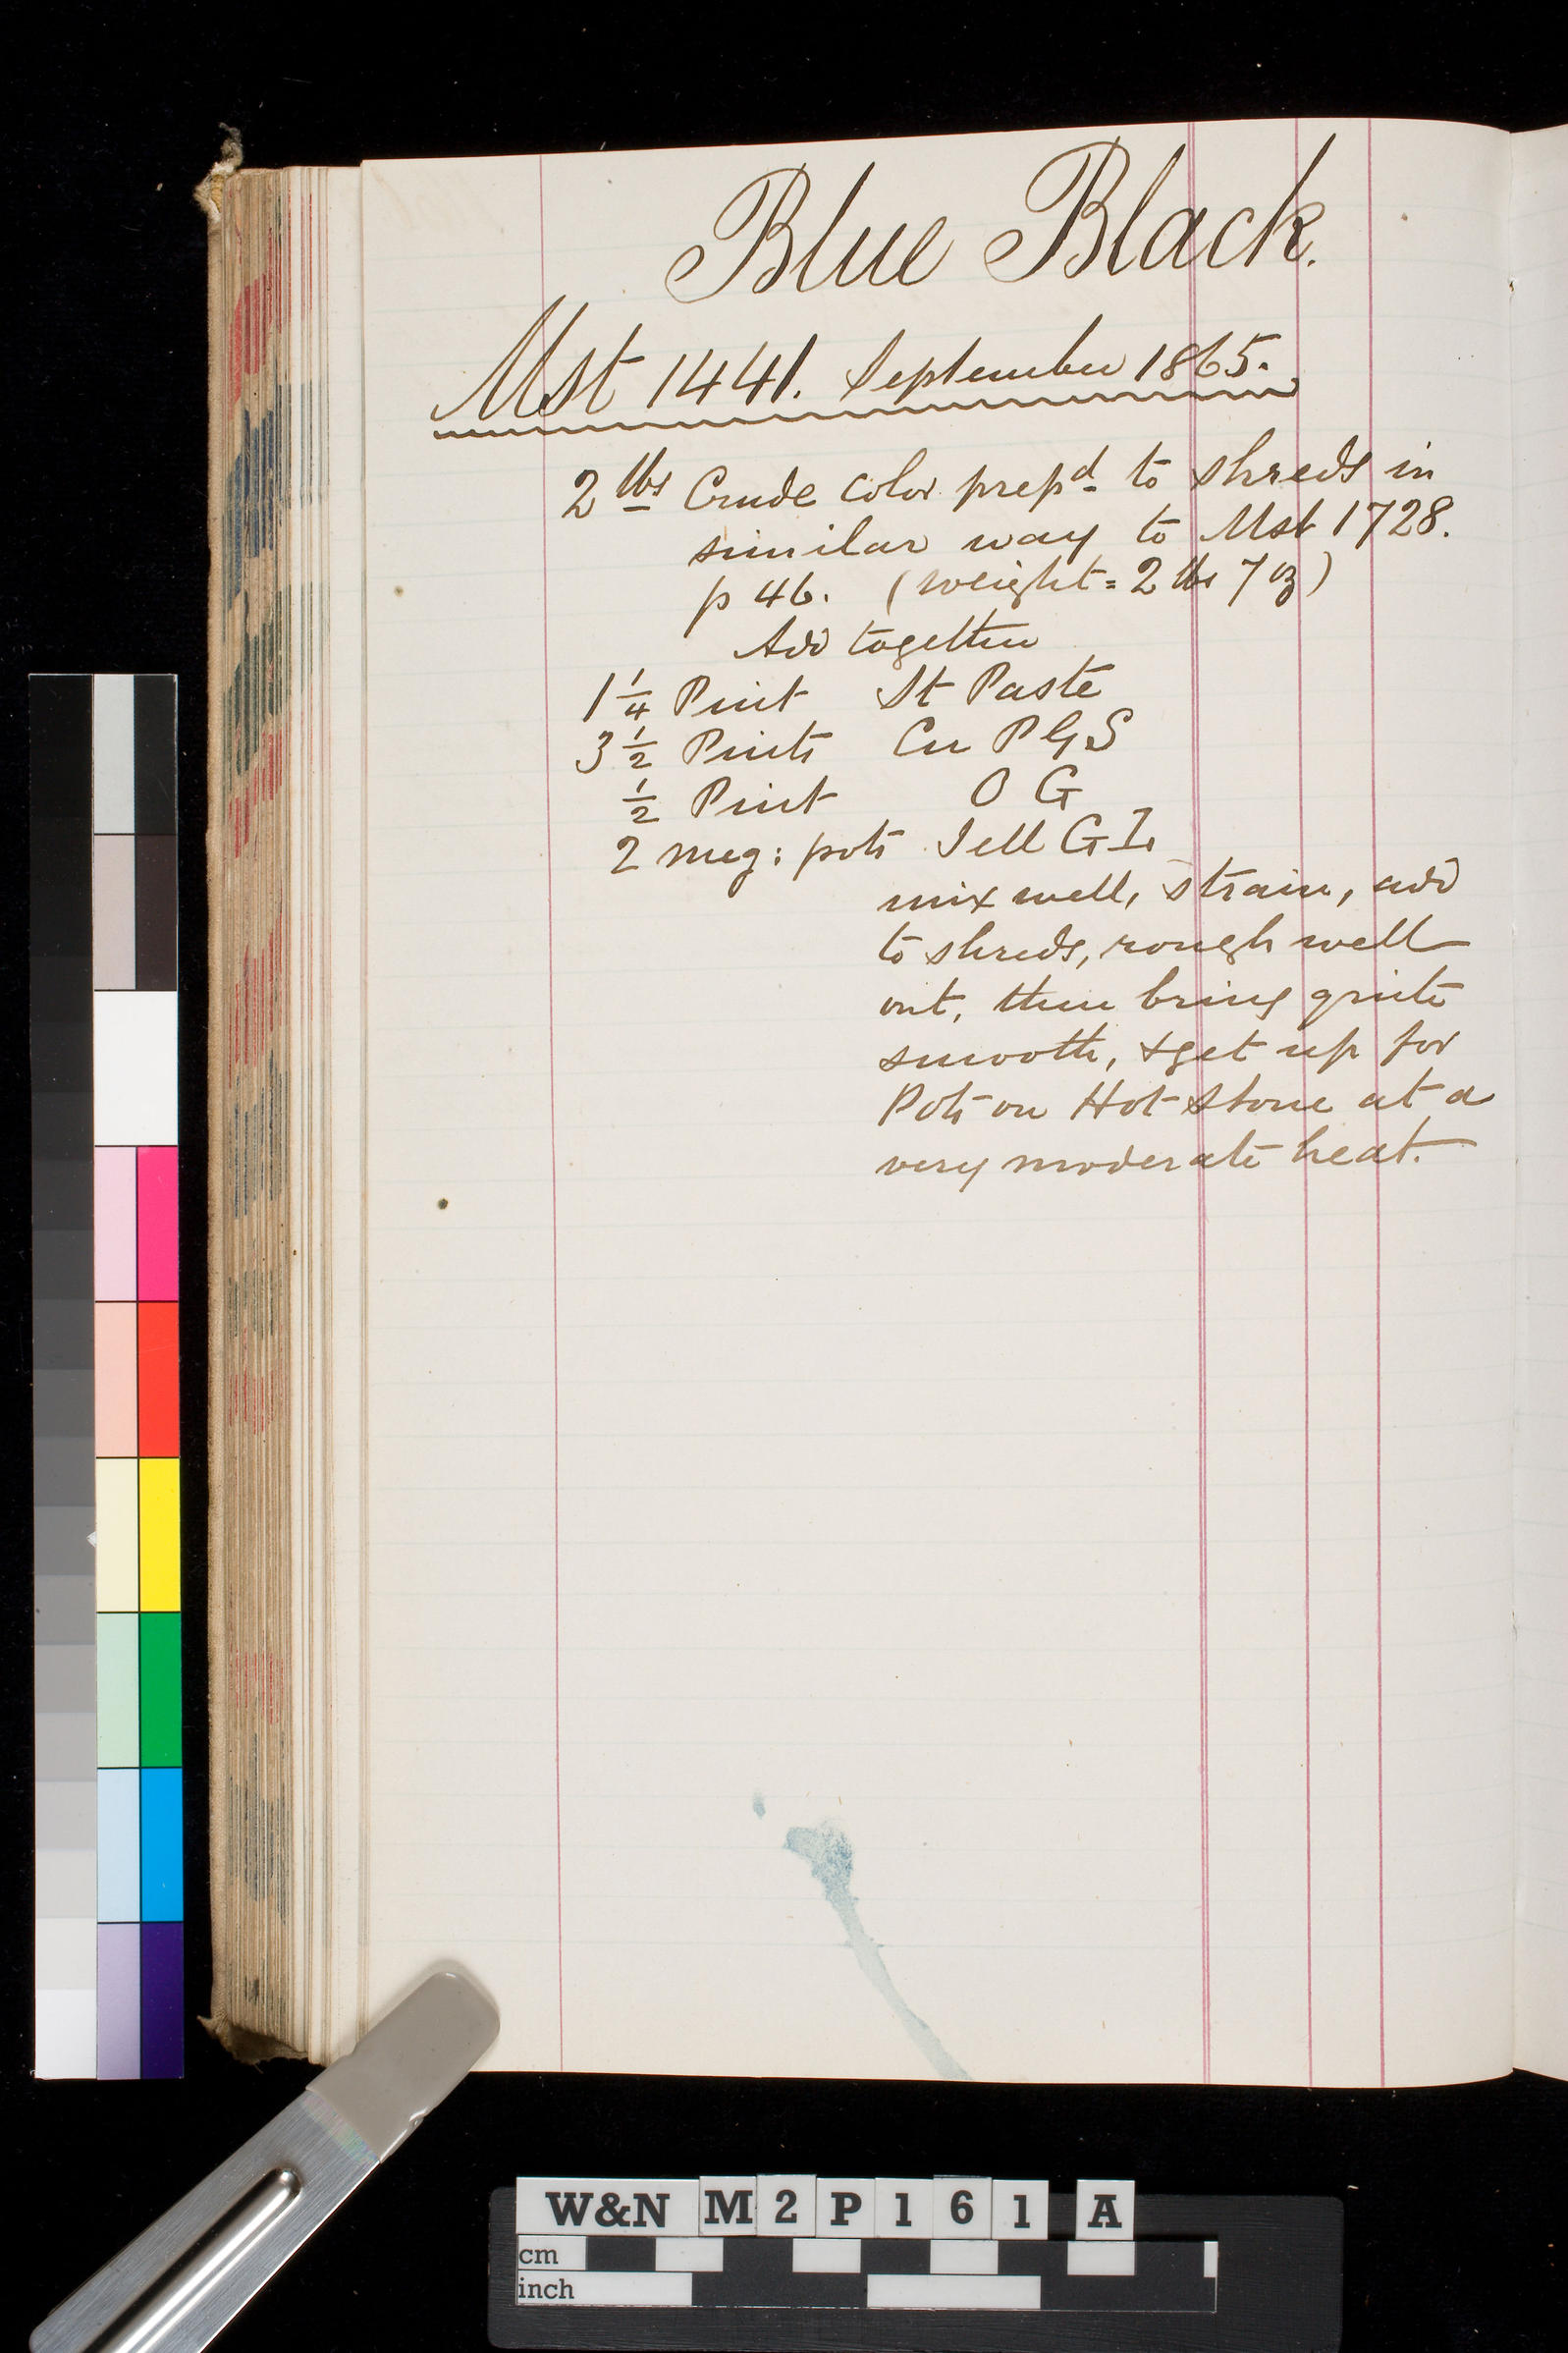 Blue Black.
Mst 1441. September 1865.
2 lbs Crude color prepd. to shreds in
similar way to Mst 1728.
p 46. (weight = 2 lbs 7 oz)
Add together
1 1/4 Pint St Paste
3 1/2 Pints Cu P G S
1/2 Pint O G
2 meg: pots Jell G I
mix well, strain, add
to shreds, rough well
out, then bring quite
smooth, & get up for
Pots on Hot Stone at a
very moderate heat.
W&N M2P161 A
cm
inch